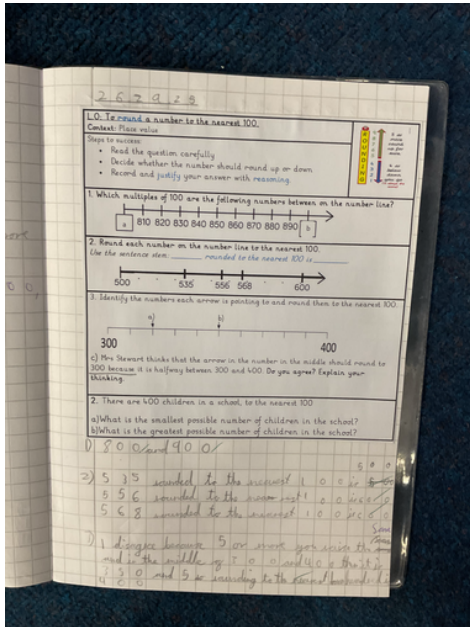 26.9.23
L.O: To round a number to the nearest 100.
Context: Place value
Steps to success:
• Read the question carefully
• Decide whether the number should round up or down
• Record and justify your answer with reasoning.
ROUNDING
1. Which multiples of 100 are the following numbers between on the number line?
a 810 820 830 840 850 860 870 880 890 b
2. Round each number on the number line to the nearest 100.
Use the sentence stem: ______ rounded to the nearest 100 is ______
500 535 556 568 600
3. Identify the numbers each arrow is pointing to and round then to the nearest 100.
a) b)
300 400
c) Mrs Stewart thinks that the arrow in the number in the middle should round to
300 because it is halfway between 300 and 400. Do you agree? Explain your
thinking.
2. There are 400 children in a school, to the nearest 100
a)What is the smallest possible number of children in the school?
b)What is the greatest possible number of children in the school?
1) 800 and 900
500
2) 535 rounded to the nearest 100 is
556 rounded to the nearest 100 is
568 rounded to the nearest 100 is
I disagree because 5 or more you raise the
and in the middle of 300 and 400 that is
350 and 5 is rounding to the
400